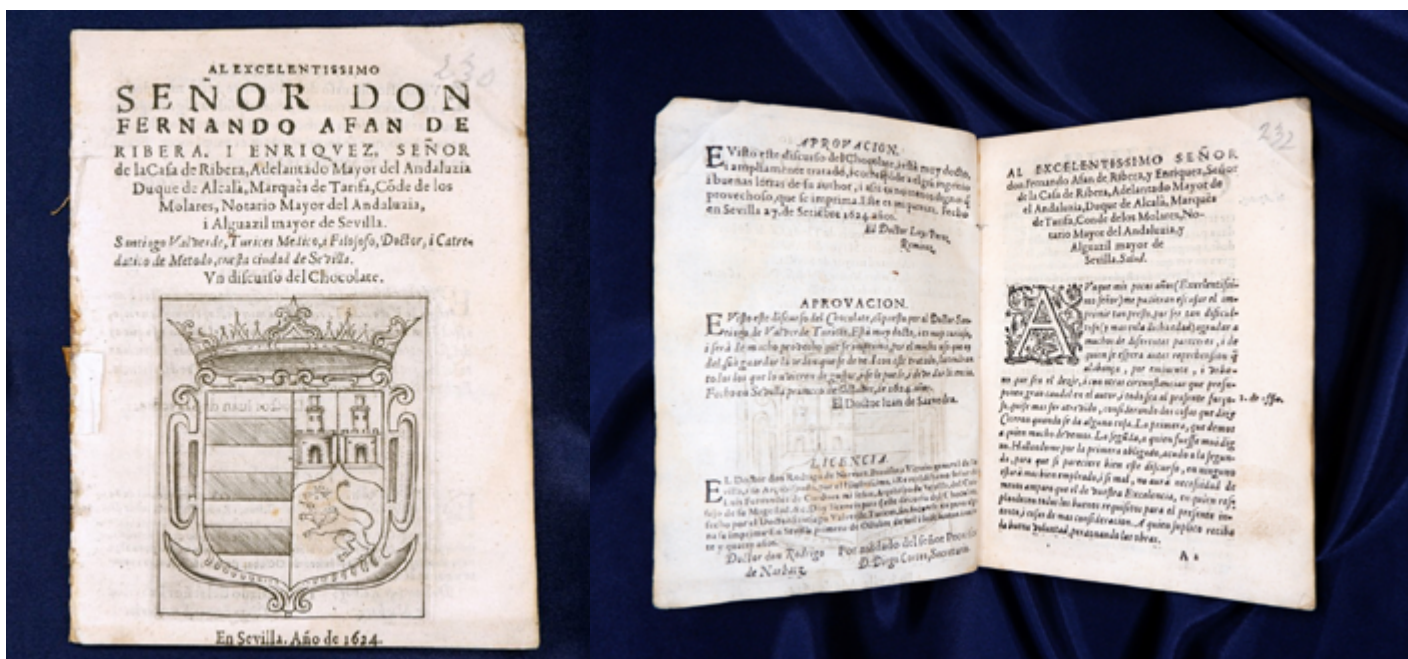 230
AL EXCELENTISSIMO
SEÑOR DON
FERNANDO AFAN DE
RIBERA, I ENRIQVEZ, SEÑOR
de la Casa de Ribera, Adelantado Mayor del Andaluzia
Duque de Alcalà, Marquès de Tarifa, Cõde de los
Molares, Notario Mayor del Andaluzia,
i Alguazil mayor de Sevilla.
Santiago Valverde, Turices Medico, i Filosofo, Doctor, i Catre-
datico de Metodo, en esta ciudad de Sevilla.
Vn discurso del Chocolate.
En Sevilla. Año de 1624.
APROVACION.
E Visto este discurso del Chocolate, i està muy docto,
i ampliamente tratado, i
i buenas letras de su author, i assi es no menos digno q̃
provechoso, que se imprima. Este es mi parecer. Fecho
en Sevilla 27. de Setiẽbre 1624. años.
El Doctor Luys Perez
Ramirez
APROVACION.
E Visto este discurso del Chocolate, cõpuesto por el Doctor San-
tiago de Valverde Turices. Està muy docto, i es muy curioso,
i serà de mucho provecho que se imprima, por el mucho uso que es
del, si guardar la orden que se deve. I con este tratado, la tendran
todos los que lo uvieren de gastar, i se le puede, i deve dar licencia.
Fecho en Sevilla primero de Octubre, de 1624. años.
El Doctor Juan de Saavedra.
LICENCIA.
EL Doctor don Rodrigo de Narvaez, Provisor i Vicario general de Se-
villa, i su Arçobispado, por el Ilustrissimo, i Reverendissimo Señor dõ
Luis Fernandez de Cordova mi señor, Arçobispo de Sevilla, del Con-
sejo de su Magestad, &c. Doy licencia para este discurso del Chocolate,
fecho por el Doctor Santiago Valverde Turices,
na se imprima. En Sevilla primero de Octubre de mil i seiscientos i vein-
te y quatro años.
Doctor don Rodrigo
de Narbaez
Por mandado del señor Provisor
D. Diego Cortes, Secretario
232
AL EXCELENTISSIMO SEÑOR
don Fernando Afan de Ribera, y Enriquez, Señor
de la Casa de Ribera, Adelantado Mayor de
el Andaluzia, Duque de Alcalà, Marquès
de Tarifa, Conde de los Molares, No-
tario Mayor del Andaluzia, y
Alguazil mayor de
Sevilla. Salud.
AVnque mis pocos años (Excelentissi-
mo señor) me pudieran escusar el im-
primir tan presto, por ser tan dificul-
toso (y mas en la dicha edad) agradar a
muchos de diferentes pareceres, i de
quien se espera antes reprehension q̃
alabança, por eminente, i debue-
no que sea el dezir, i con otras circunstancias que presu-
ponen gran caudal en el autor, i todo sea al presente forço-
so, quise mas ser atrevido, considerando dos cosas que dize
1. de offic.
Ciceron quando se da alguna cosa. La primera, que demos
a quien mucho devemos. La segũda, a quien fuesse mui dig
no. Hallandome por la primera obligado, acudo a la segun-
da, para que si pareciere bien este discurso, en ninguno
estarà mas bien empleado, i si mal, no aurà necesidad de
menos amparo que el de vuestra Excelencia, en quien res-
plandecen todos los buenos requisitos para el presente in-
tento, i cosas de mas consideracion. A quien suplico reciba
la buena voluntad, perdonando las obras.
A 2